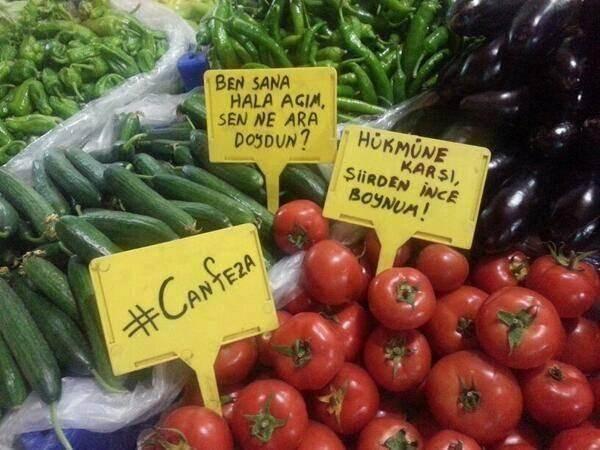 BEN SANA
HALA AÇIM,
SEN NE ARA
DOYDUN?
HÜKMÜNE
KARŞI,
ŞİİRDEN İNCE
BOYNUM!
#CANFEZA